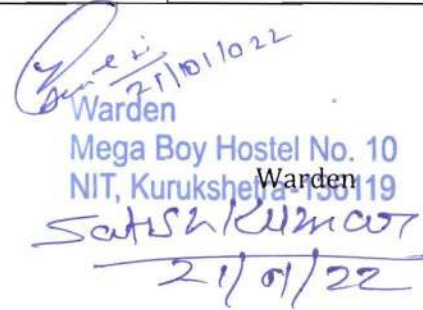 21/01/022
Warden
Mega Boy Hostel No. 10
NIT, Kurukshetra-136119
Warden
Satish Kumar
21/01/22